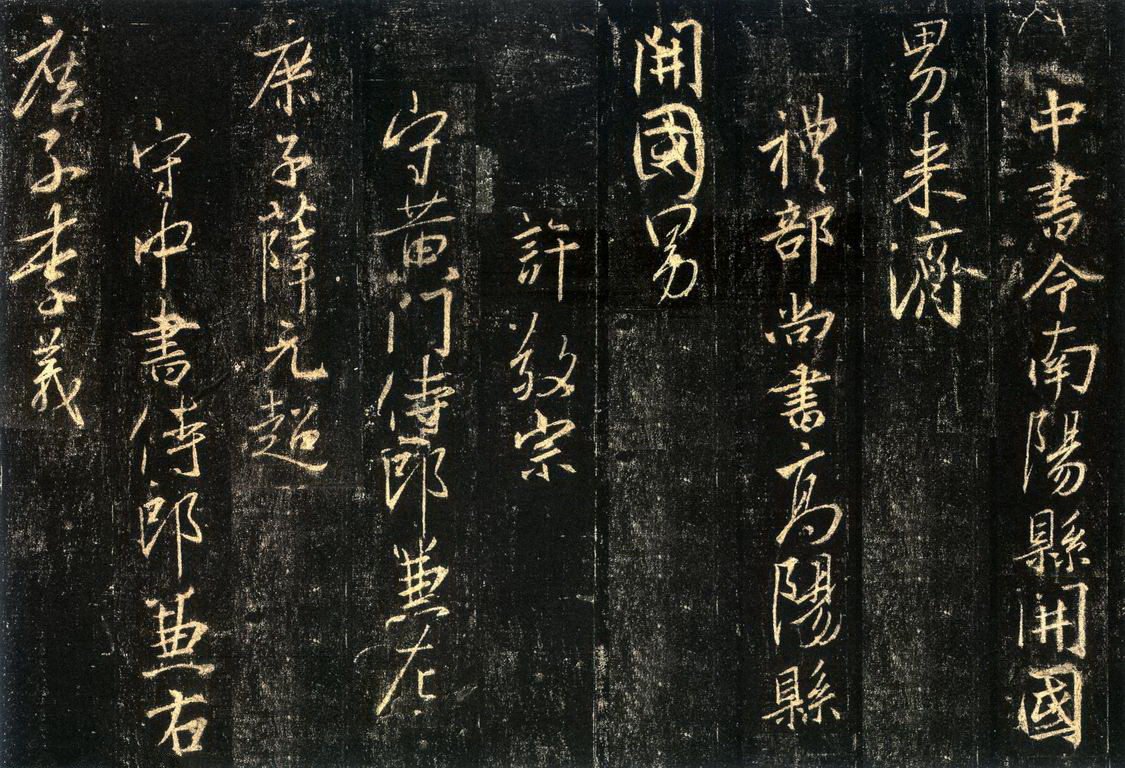 中書令南陽縣開國
男来濟
禮部尚書高陽縣
開國男
許敬宗
守黃门侍郎兼左
庶子薛元超
守中書侍郎兼右
庶子李義